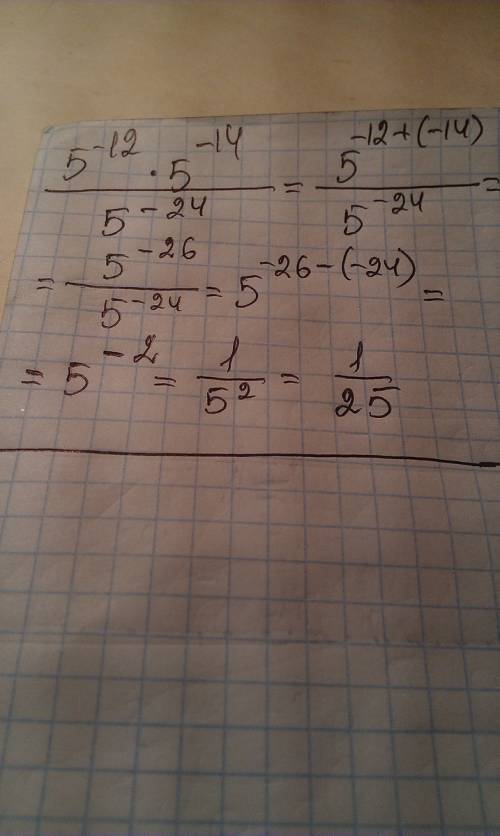 \frac{5^{-12} \cdot 5^{-14}}{5^{-24}} = \frac{5^{-12+(-14)}}{5^{-24}} =
= \frac{5^{-26}}{5^{-24}} = 5^{-26-(-24)} =
= 5^{-2} = \frac{1}{5^2} = \frac{1}{25}